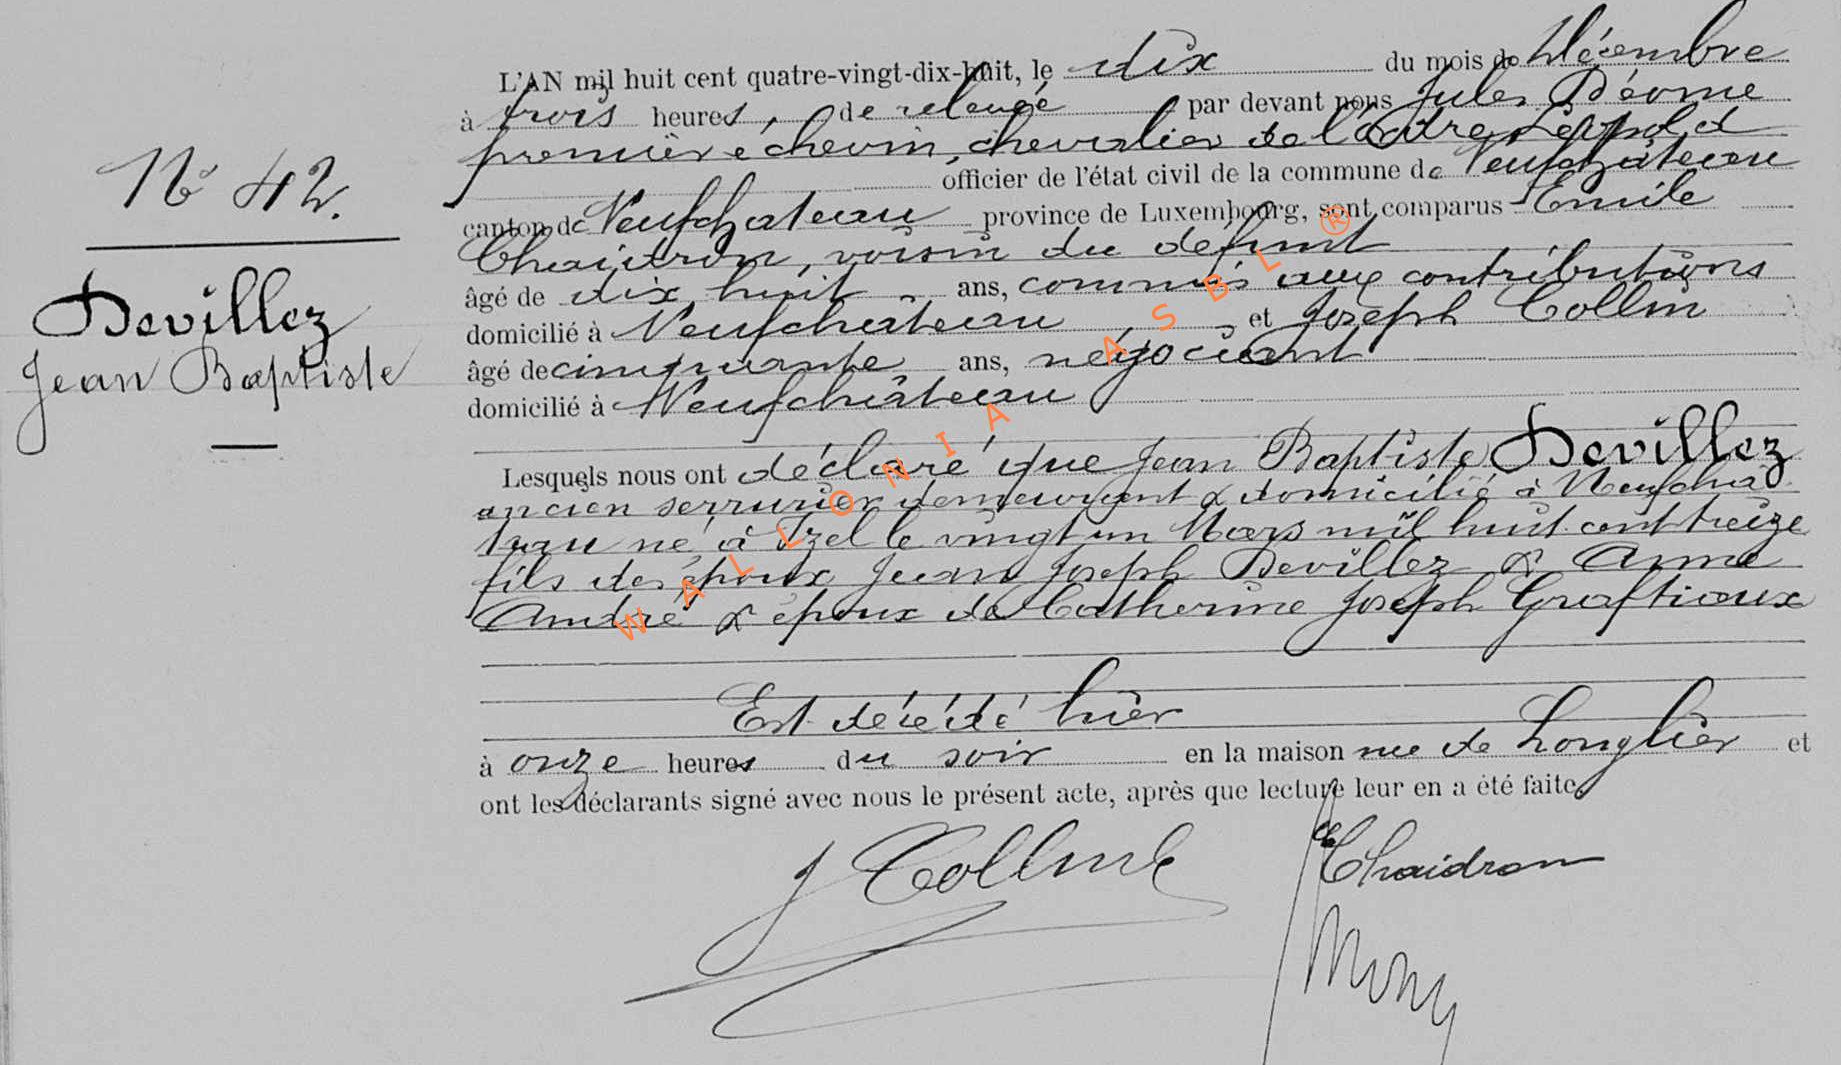 N° 42.
Devillez
Jean Baptiste
L'AN mil huit cent quatre-vingt-dix-huit, le dix du mois de Décembre
à trois heures, de relevée par devant nous Jules
premier échevin, chevalier de l'Ordre Léopold
officier de l'état civil de la commune de Neufchâteau
canton de Neufchateau province de Luxembourg, sont comparus Emile
Chaidron, voisin du défunt
âgé de dix huit ans, commis aux contributions
domicilié à Neufchâteau, et Joseph Collin
âgé de cinquante ans, négociant
domicilié à Neufchâteau
Lesquels nous ont déclaré que Jean Baptiste Devillez
ancien serrurier demeurant & domicilié à Neufchâ
teau né à Izel le vingt un Mars mil huit cent treize
fils des époux Jean Joseph Devillez & Anne
André & époux de Catherine Joseph Graftiaux
Est décédé hier
à onze heures du soir en la maison rue de Longlier et
ont les déclarants signé avec nous le présent acte, après que lecture leur en a été faite.
J Collin
Chaidron
WALLONIA ASBL ®